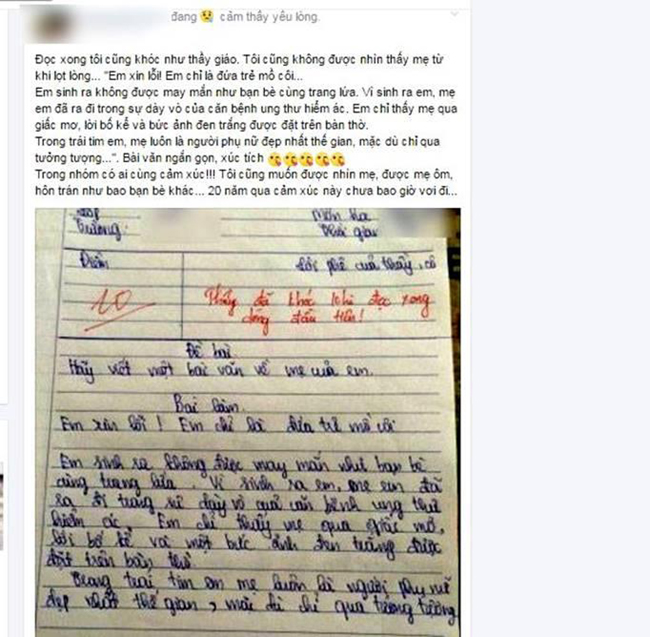 đang cảm thấy yêu lòng.
Đọc xong tôi cũng khóc như thầy giáo. Tôi cũng không được nhìn thấy mẹ từ
khi lọt lòng... "Em xin lỗi! Em chỉ là đứa trẻ mồ côi...
Em sinh ra không được may mắn như bạn bè cùng trang lứa. Vì sinh ra em, mẹ
em đã ra đi trong sự dày vò của căn bệnh ung thư hiểm ác. Em chỉ thấy mẹ qua
giấc mơ, lời bố kể và bức ảnh đen trắng được đặt trên bàn thờ.
Trong trái tim em, mẹ luôn là người phụ nữ đẹp nhất thế gian, mặc dù chỉ qua
tưởng tượng...". Bài văn ngắn gọn, xúc tích
Trong nhóm có ai cùng cảm xúc!!! Tôi cũng muốn được nhìn mẹ, được mẹ ôm,
hôn trán như bao bạn bè khác... 20 năm qua cảm xúc này chưa bao giờ vơi đi...
Lớp
Trường:
Điểm
Lời phê của thầy, cô
10
Thầy đã khóc khi đọc xong
dòng đầu tiên!
Đề bài
Hãy viết một bài văn về mẹ của em.
Bài làm.
Em xin lỗi! Em chỉ là đứa trẻ mồ côi
Em sinh ra không được may mắn như bạn bè
cùng trang lứa. Vì sinh ra em, mẹ em đã
ra đi trong sự dày vò của căn bệnh ung thư
hiểm ác. Em chỉ thấy mẹ qua giấc mơ,
lời bố kể và một bức ảnh đen trắng được
đặt trên bàn thờ.
Trong trái tim em mẹ luôn là người phụ nữ
đẹp nhất thế gian, mặc dù chỉ qua tưởng tượng